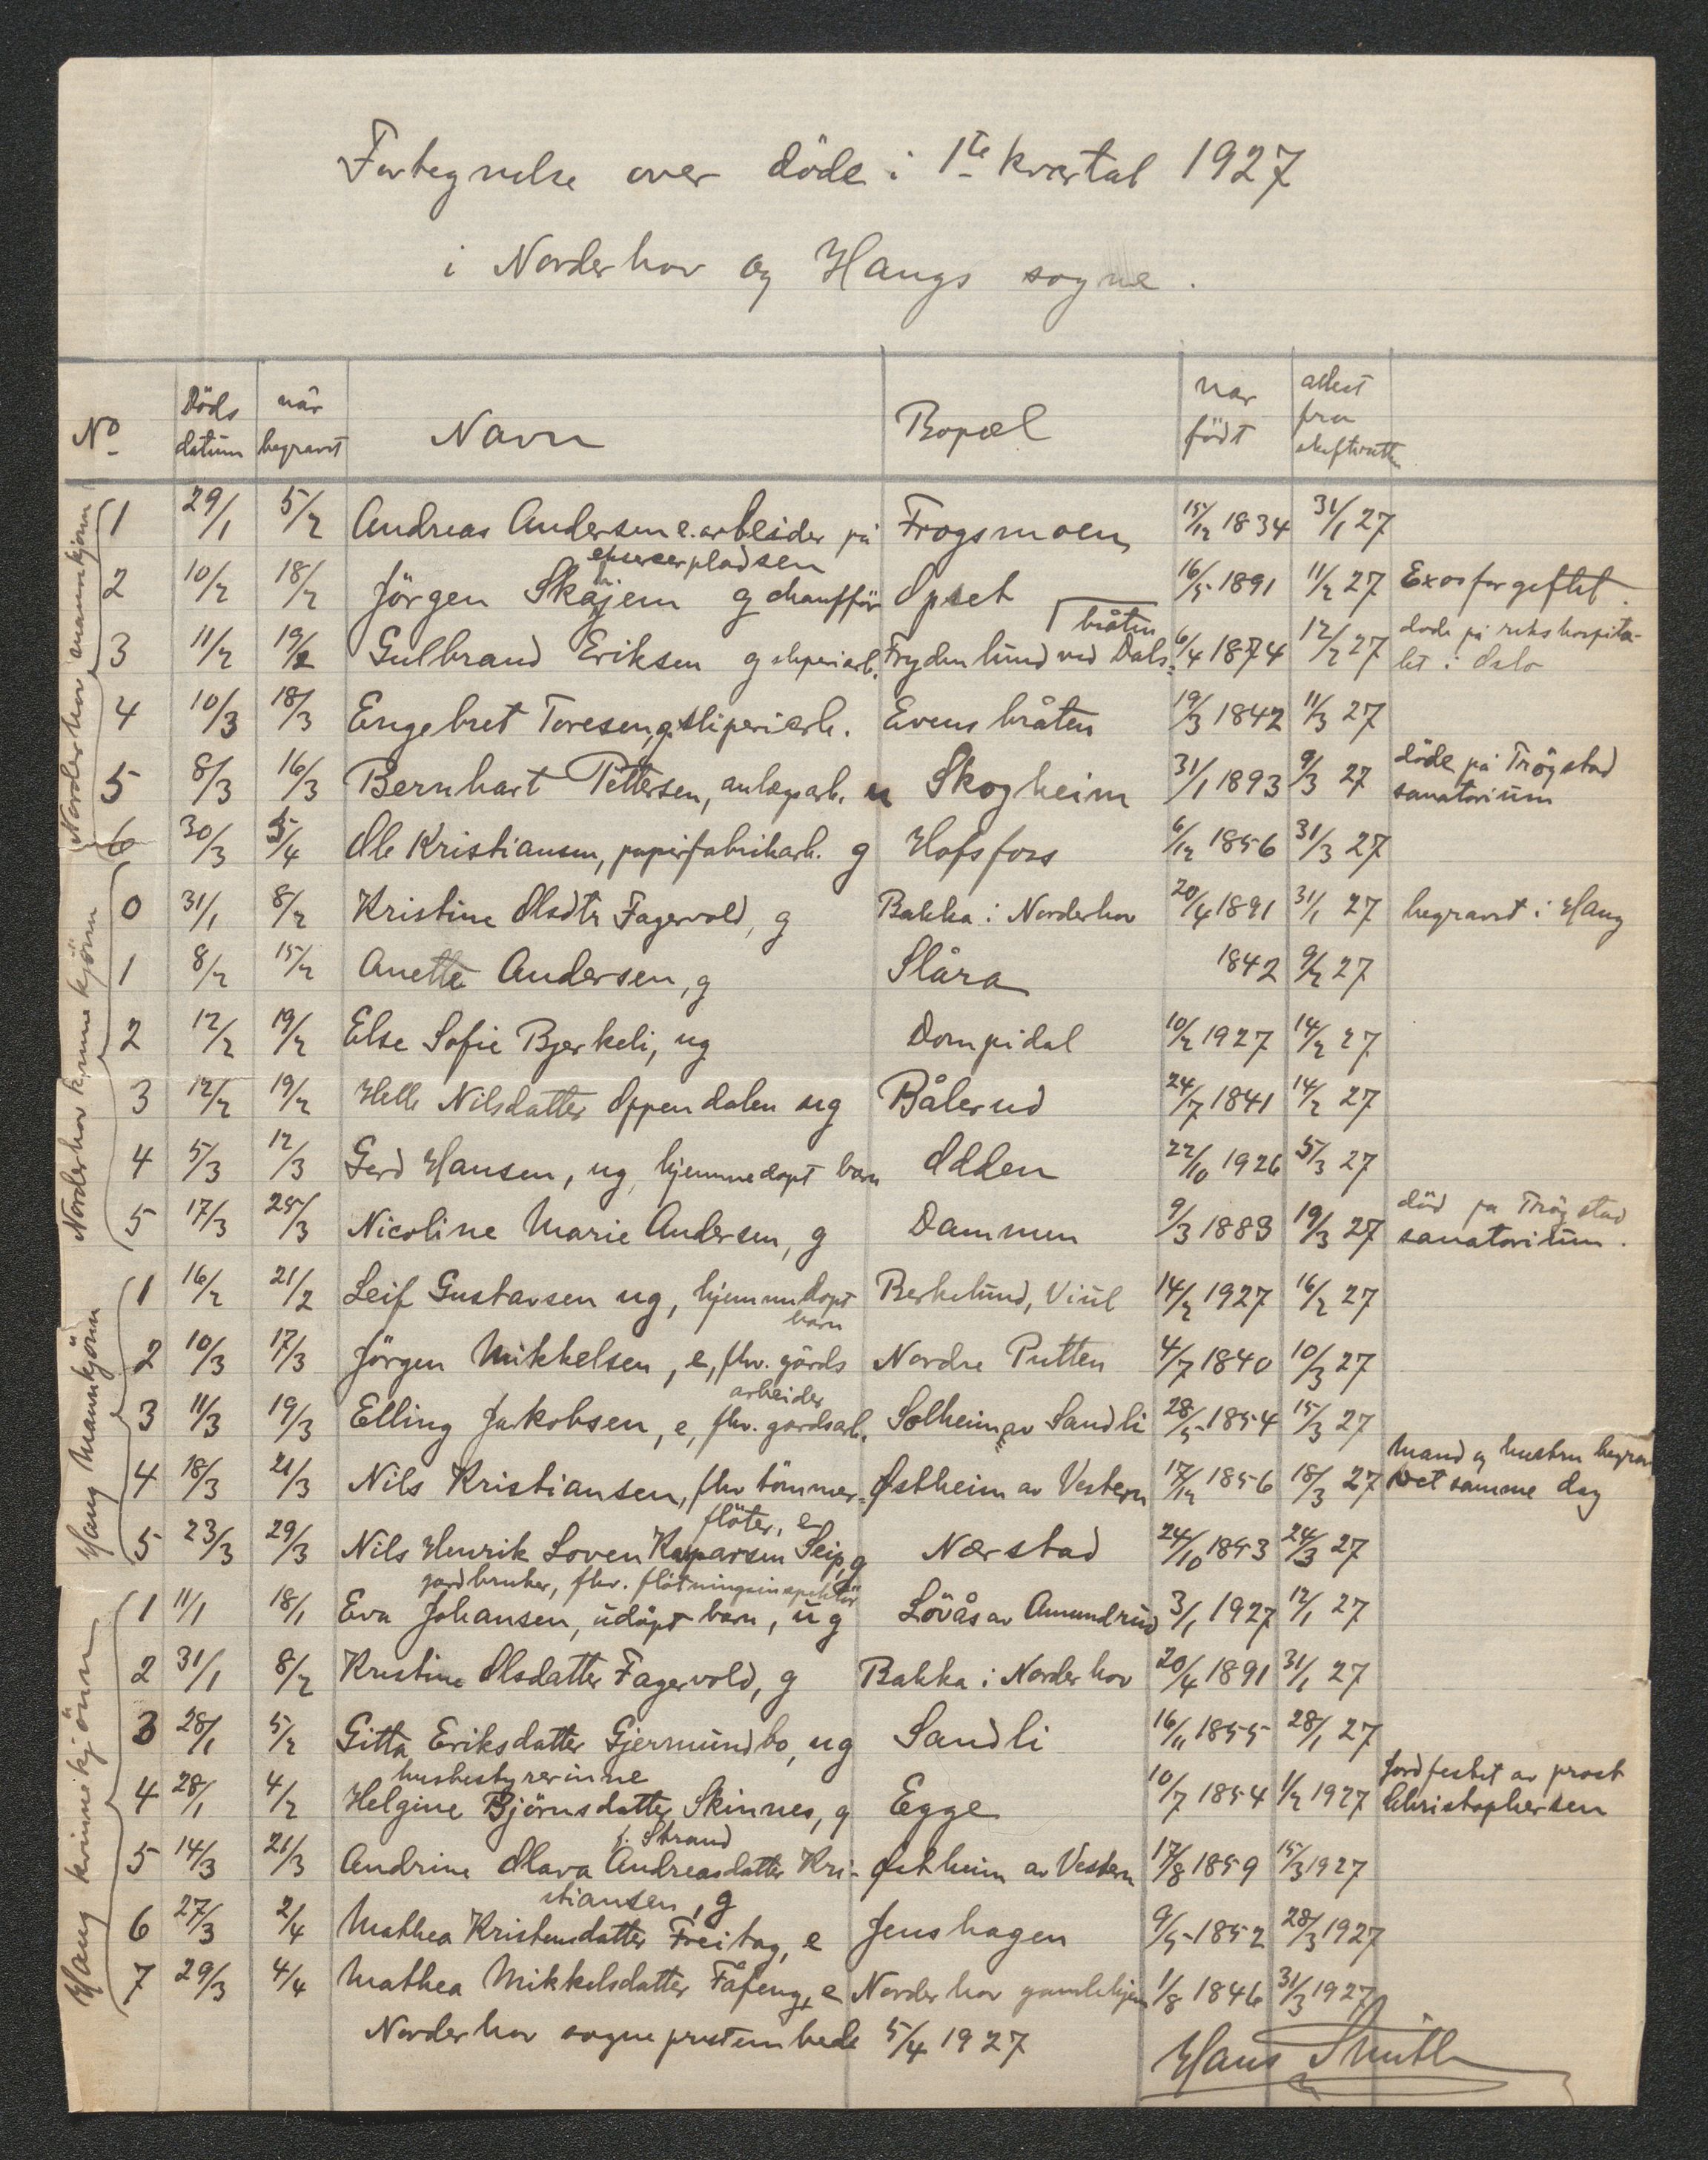 Fortegnelse over döde i 1te kvartal 1927
i Norderhov og Haugs sogne.
No Döds datum når begravt Navn Bopæl nar födt attest fra skifteretten
Norderhov mannkjönn
1 29/1 5/2 Andreas Andersen e. arbeider på Frogsmoen 15/12 1834 31/1 27
ekserserpladsen
2 10/2 18/2 Jörgen Skajem g chaufför Opset 16/5 1891 11/2 27 Exosforgiftet.
3 11/2 19/2 Gulbrand Eriksen g sliperiarb. Frydenlund ved Dals= bråten 6/4 1874 12/2 27 döde på rikshospita-
let i Oslo
4 10/3 18/3 Engebret Toresen, g. sliperiarb. Evensbråten 19/3 1842 11/3 27
5 8/3 16/3 Bernhart Pettersen, anlægsarb. u Skogheim 31/1 1893 9/3 27 döde på Trögstad
sanatorium
6 30/3 5/4 Ole Kristiansen, papirfabrikarb. g Hofsfoss 6/12 1856 31/3 27
Norderhov kvinnekjönn
0 31/1 8/2 Kristine Olsdtr Fagervold, g Bakka i Norderhov 20/4 1891 31/1 27 begravet i Haug
1 8/2 15/2 Anette Andersen, g Slåra 1842 9/2 27
2 12/2 19/2 Else Sofie Bjerkeli, ug Dompidal 10/2 1927 14/2 27
3 12/2 19/2 Helle Nilsdatter Oppendalen ug Bålerud 24/7 1841 14/2 27
4 5/3 12/3 Gerd Hansen, ug, hjemmedöpt barn Odden 22/10 1926 5/3 27
5 17/3 25/3 Nicoline Marie Andersen, g Dammen 9/3 1883 19/3 27 död på Trögstad
sanatorium.
Haug Mannkjönn
1 16/2 21/2 Leif Gustavsen ug, hjemmedöpt Berkelund, Viul 14/2 1927 16/2 27
barn
2 10/3 17/3 Jörgen Mikkelsen, e, fhv. gårds Nordre Putten 4/7 1840 10/3 27
arbeider
3 11/3 19/3 Elling Jakobsen, e, fhv. gardsarb. Solheim av Sandli 28/5 1854 15/3 27
4 18/3 21/3 Nils Kristiansen, fhv tömmer= Østheim av Vestern 17/12 1856 18/3 27 Mand og hustru begra-
vet samme dag
flöter, e
5 23/3 29/3 Nils Henrik Loven Kasparsen Seip, g Nærstad 24/10 1853 24/3 27
jordbruker, fhv. flötningsinspektör
Haug kvinnekjönn
1 11/1 18/1 Eva Johansen, udöpt barn, ug Lövås av Amundrud 3/1 1927 12/1 27
2 31/1 8/2 Kristine Olsdatter Fagervold, g Bakka i Norderhov 20/4 1891 31/1 27
3 28/1 5/2 Gitta Eriksdatter Gjermundbo, ug Sandli 16/11 1855 28/1 27
husbestyrerinne
4 28/1 4/2 Helgine Björnsdatter Skinnes, g Egge 10/7 1854 1/2 1927 Jordfestet av prost
Christophersen
f. Strand
5 14/3 21/3 Andrine Olava Andreasdatter Kri- Østheim av Vestern 17/8 1859 15/3 1927
stiansen, g
6 27/3 2/4 Mathea Kristensdatter Freitag, e Jenshagen 9/5 1852 28/3 1927
7 29/3 4/4 Mathea Mikkelsdatter Fåfeng, e Norderhov gamlehjem 1/8 1846 31/3 1927
Norderhov sogneprestembede 5/4 1927
Hans Smith